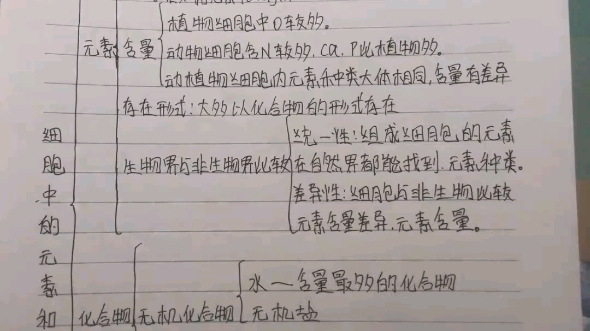 植物细胞中O较多。
元素 含量
动物细胞含N较多,Ca、P比植物多。
动植物细胞内元素种类大体相同,含量有差异
存在形式:大多以化合物的形式存在
统一性:组成细胞的元素
生物界与非生物界比较 在自然界都能找到.元素种类。
差异性:细胞与非生物比较
元素含量差异.元素含量。
细胞中的元素和
水一含量最多的化合物
化合物 无机化合物 无机盐